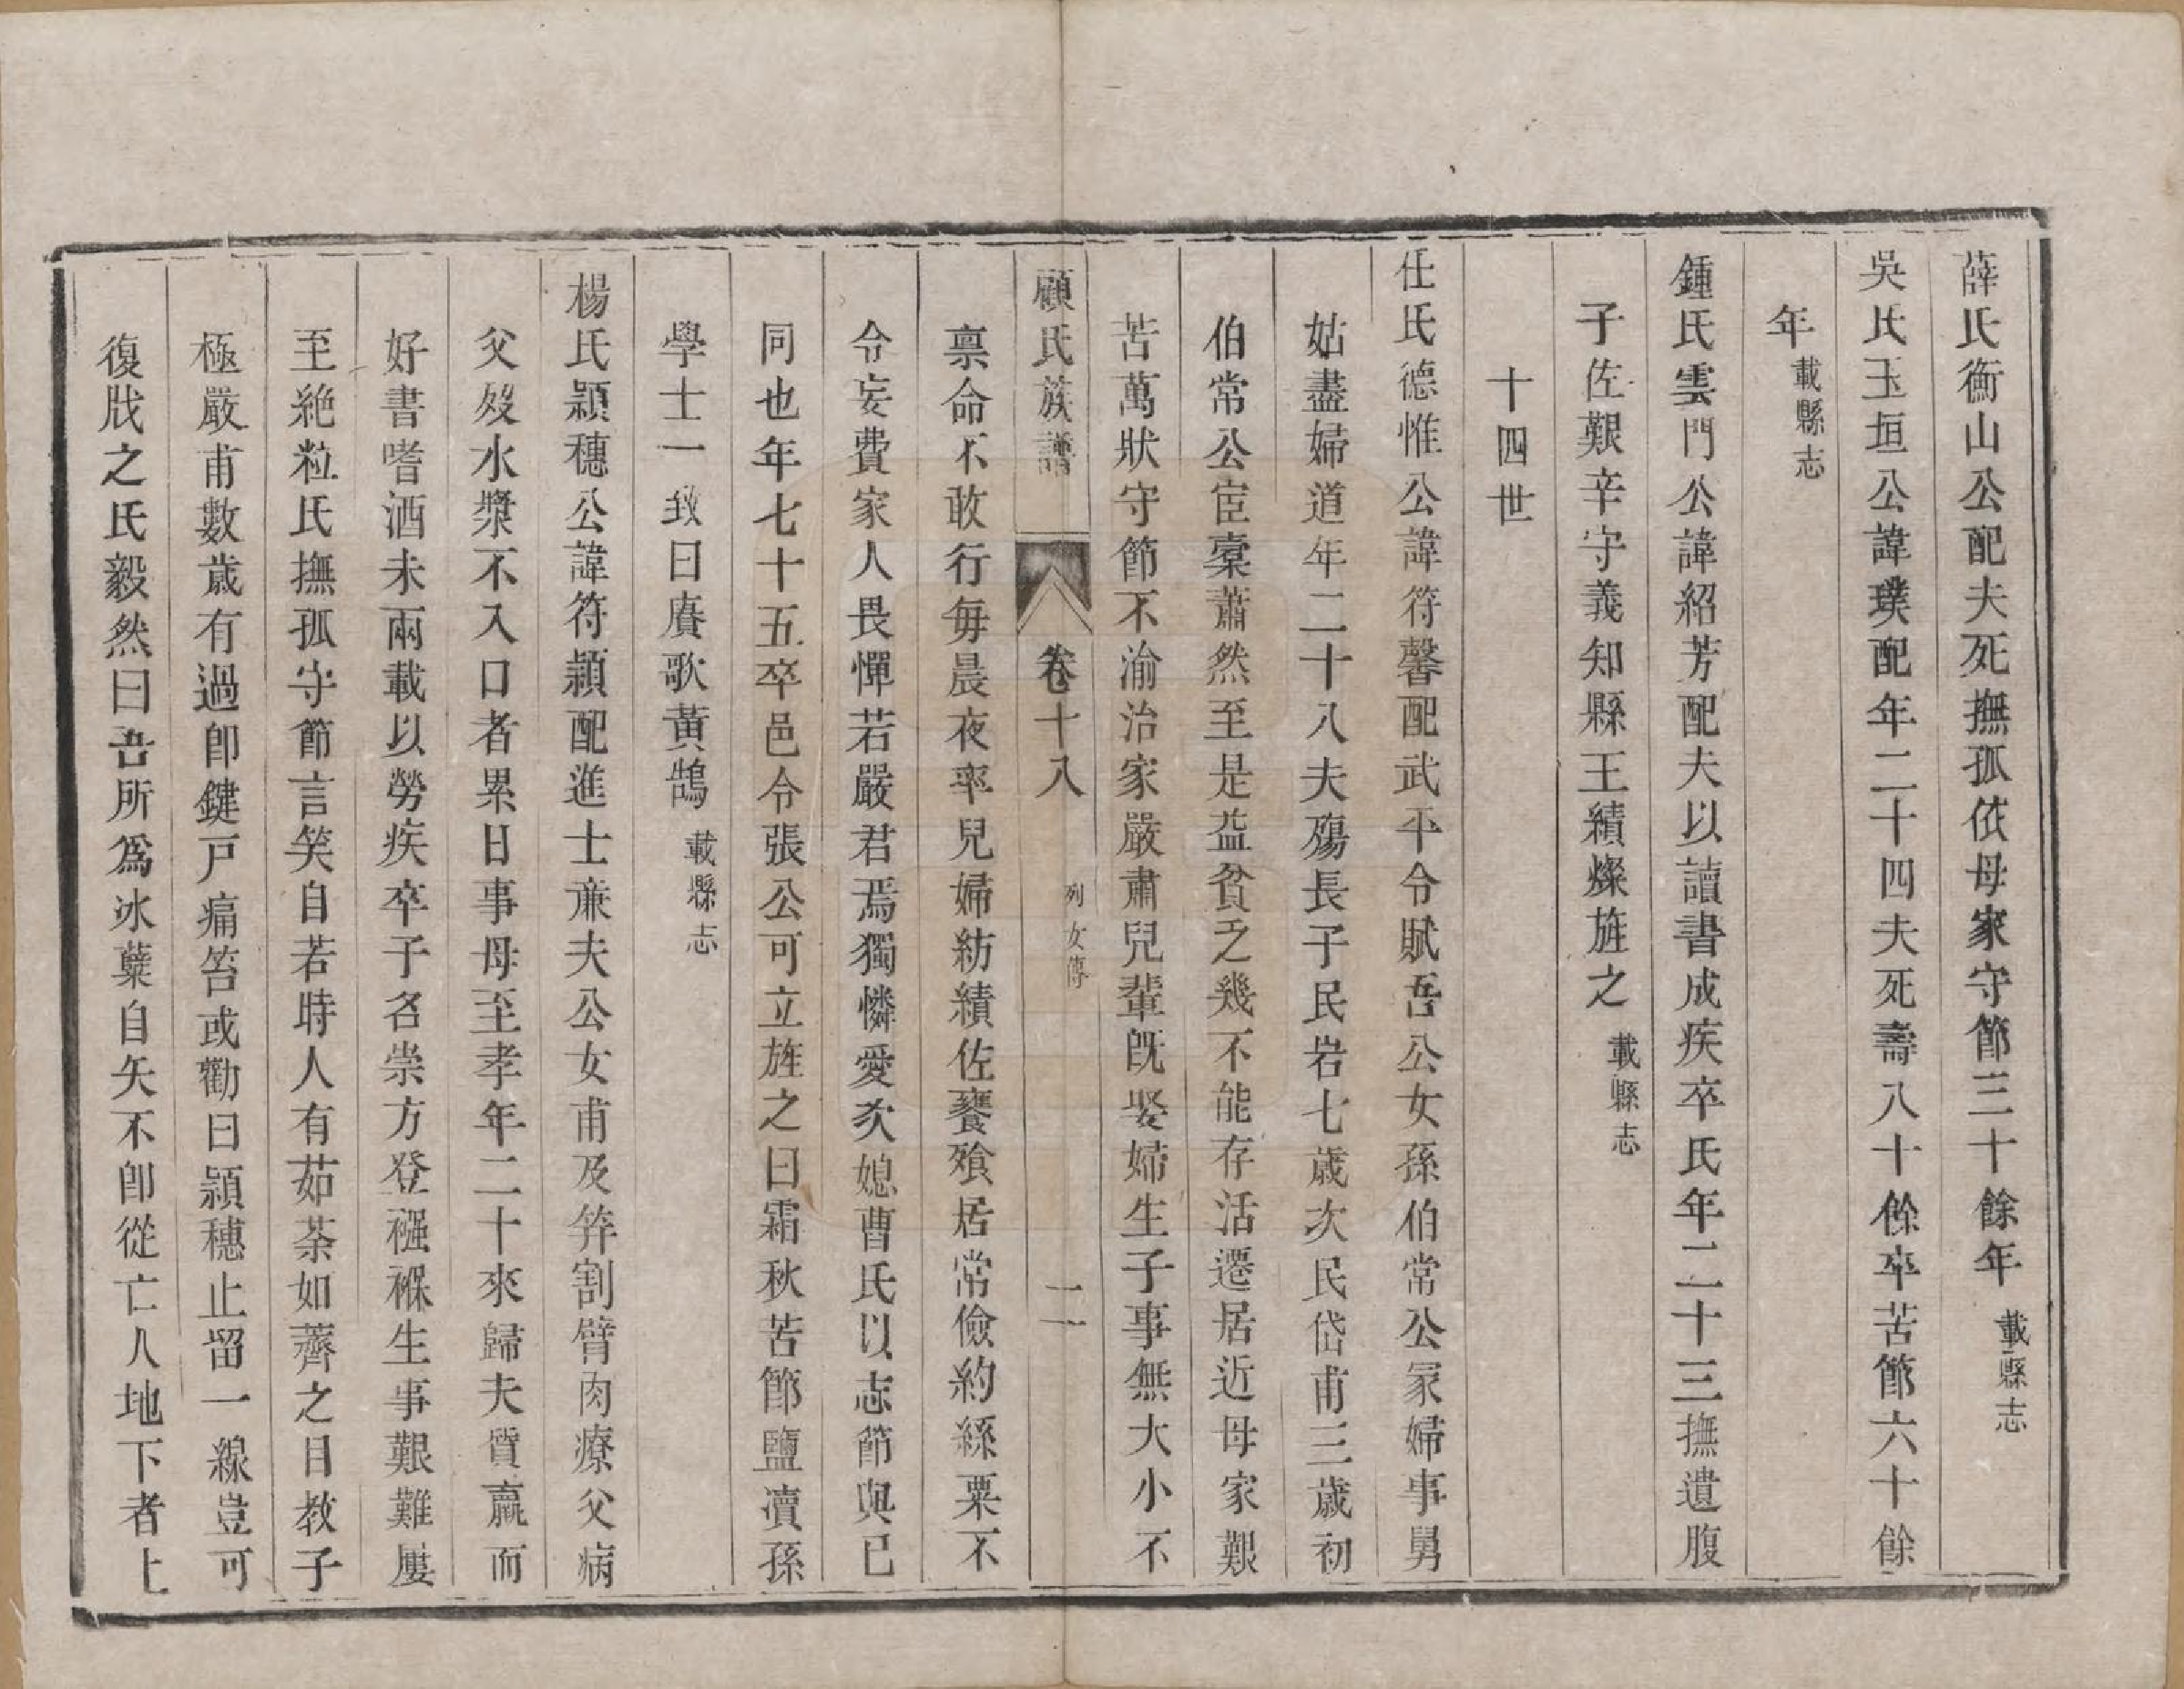 薛氏衡山公配夫死撫孤依母家守節三十餘年載縣志
吳氏玉垣公諱璞配年二十四夫死壽八十餘卒苦節六十餘
年載縣志
鍾氏雲門公諱紹芳配夫以讀書成疾卒氏年二十三撫遺腹
子佐艱辛守義知縣王績燦旌之載縣志
十四世
任氏德惟公諱符馨配武平令賦吾公女孫伯常公冢婦事舅
姑盡婦道年二十八夫殤長子民岩七歲次民岱甫三歲初
伯常公宦橐蕭然至是益貧乏幾不能存活遷居近母家艱
苦萬狀守節不渝治家嚴肅兒輩旣娶婦生子事無大小不
顧氏族譜 卷十八 列女傳 二
稟命不敢行每晨夜率兒婦紡績佐饔飧居常儉約絲粟不
令妄費家人畏憚若嚴君焉獨憐愛次媳曹氏以志節與已
同也年七十五卒邑令張公可立旌之曰霜秋苦節鹽瀆孫
學士一致曰賡歌黃鵠載縣志
楊氏穎穗公諱符穎配進士亷夫公女甫及笄割臂肉療父病
父歿水漿不入口者累日事母至孝年二十來歸夫質羸而
好書嗜酒未兩載以勞疾卒子名崇方登襁褓生事艱難屢
至絶粒氏撫孤守節言笑自若時人有茹荼如薺之目教子
極嚴甫數歲有過卽鍵戸痛笞或勸曰穎穗止留一線豈可
復戕之氏毅然曰吾所爲冰蘗自矢不卽從亡人地下者上